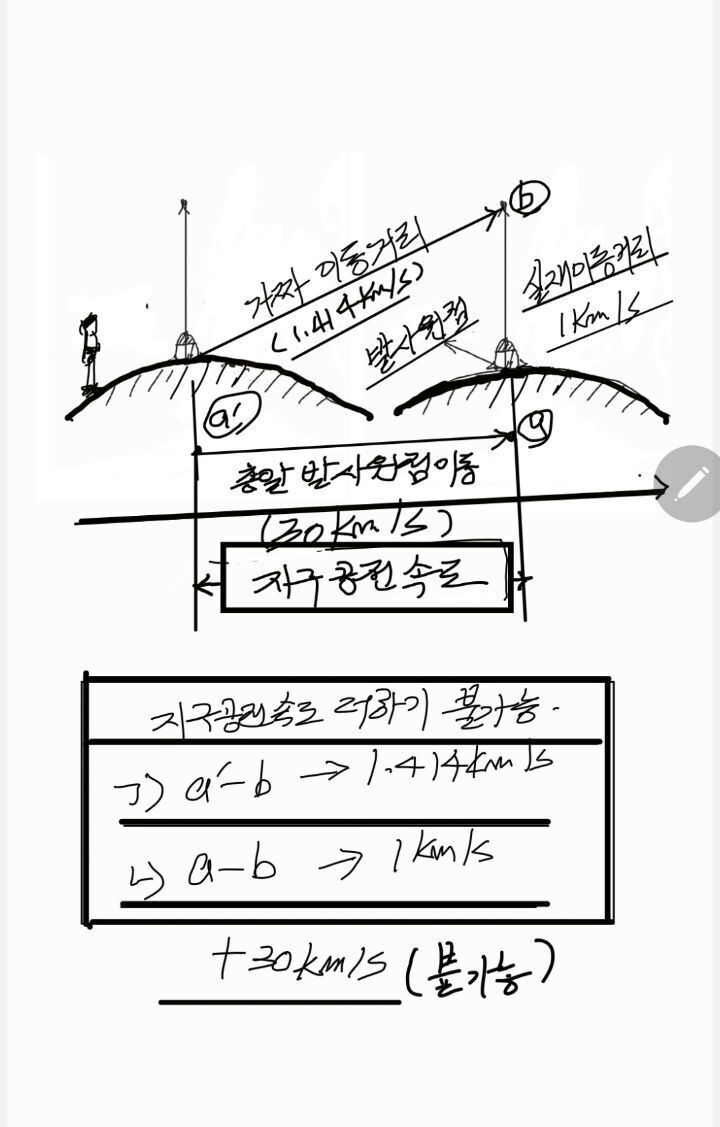 ⓑ
가짜 이동거리
(1.414km/s)
실재이동거리
1km/s
발사원점
ⓐ'
ⓐ
총알 발사원점이동
(30km/s)
지구공전속도
지구공전속도 더하기 불가능.
ㄱ) a'-b → 1.414km/s
ㄴ) a-b → 1km/s
+30km/s (불가능)